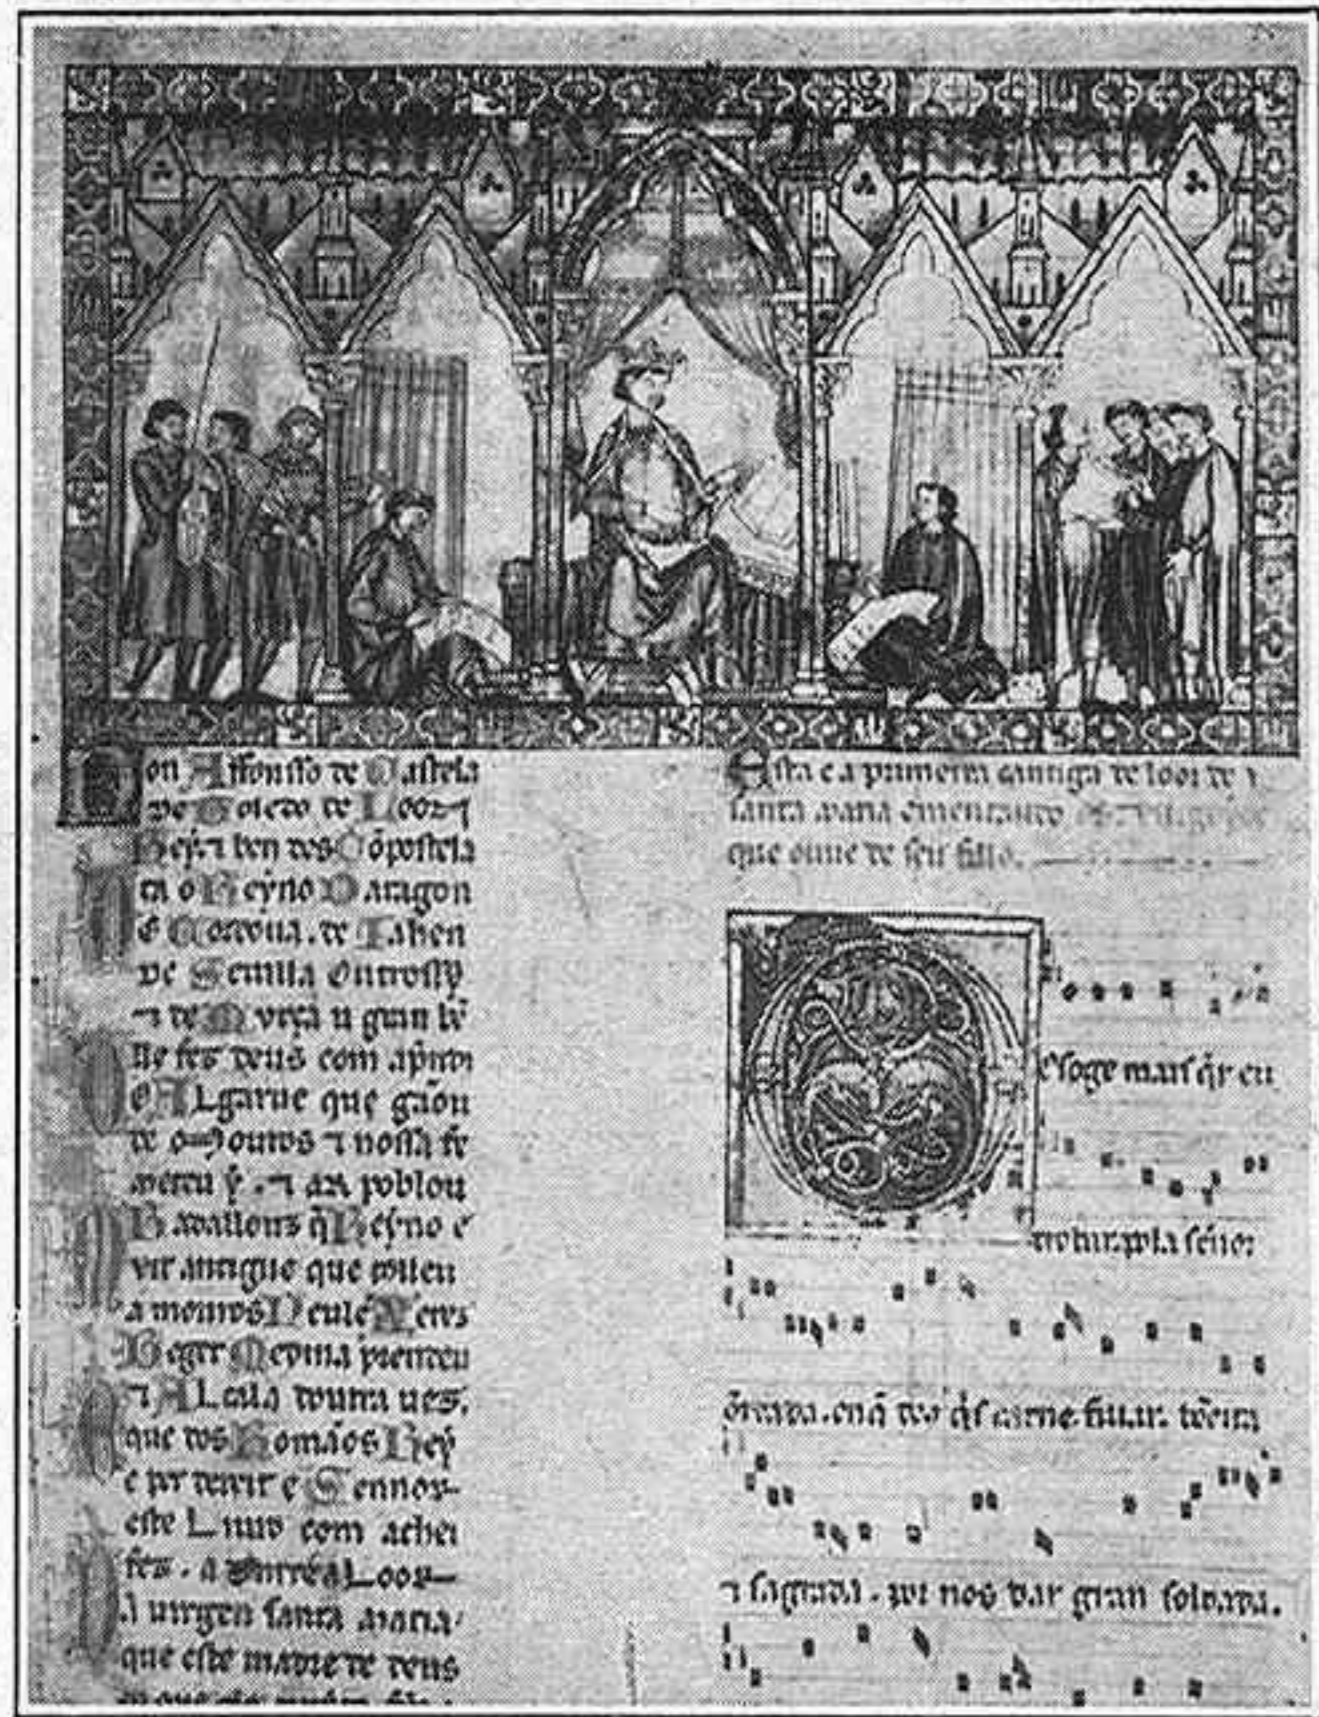 Don Affonsso de Castela
de Toledo de Leon ⁊
Rey ⁊ ben des Cõpostela
ta o Reyno Daragon
De Cordoua. de Iahen
de Seuilla outrossy
⁊ de Murça u gran bẽ
lle fez deus com aprendi
o ALgarue que gãou
de mouros ⁊ nossa fe
meteu y. ⁊ ar poblou
Badallouz q̃ Reyno e
que tolleu
a mouros Neul e Xeres
Beger Medina prendeu
⁊ ALcala doutra uez.
que dos Romãos Rey
e per dereit e Sennor
este Liuro com achei
fez. a onrr e a Loor
da uirgen santa maria.
que este madre de deus
Esta e a primeira cantiga de loor de
santa maria ementando
que ouue de seu fillo.
Des oge mais q̃r eu
trobar. pola sẽnor
õrrada. en q̃ deus q̃s carne fillar. bẽeita
⁊ sagrada. por nos dar gran soldada.